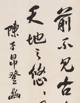 前不見古
天地之悠
陳子昂登幽